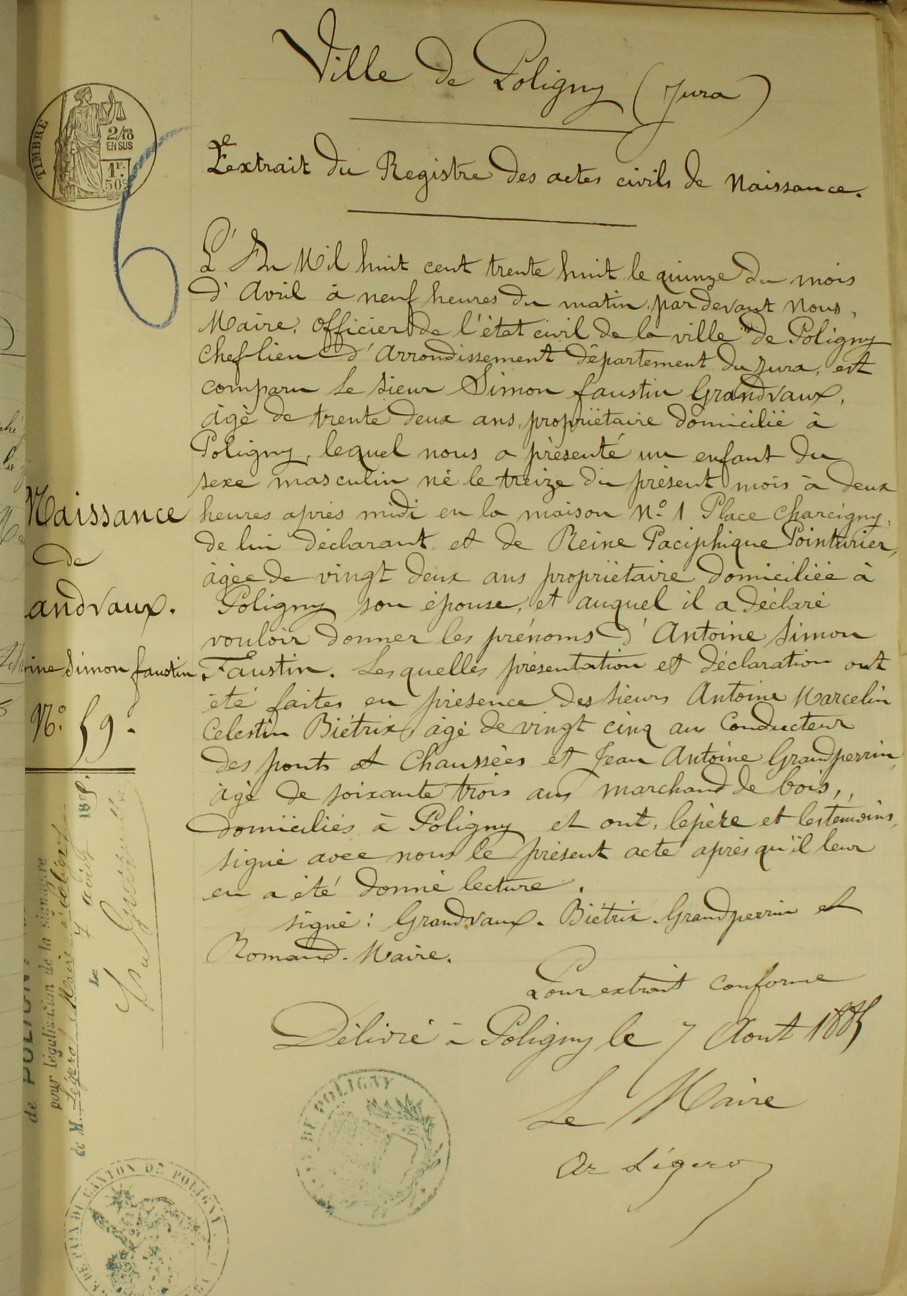 Ville de Poligny (Jura)
TIMBRE
2/10
EN SUS
1F.
50c
6
Extrait du Registre des actes civils de Naissance.
L'An Mil huit cent trente huit le quinze du mois
d'Avril à neuf heures du matin, par devant Nous,
Maire, officier de l'état civil de la ville de Poligny
chef lieu d'Arrondissement département du Jura, est
comparu le sieur Simon faustin Grandvaux,
âgé de trente deux ans, propriétaire domicilié à
Poligny, lequel nous a présenté un enfant du
sexe masculin né le treize du présent mois à deux
heures après midi en la maison N° 1 Place Charcigny,
de lui déclarant et de Reine Paciphique Pointurier,
âgée de vingt deux ans propriétaire domiciliée à
Poligny son épouse, et auquel il a déclaré
vouloir donner les prénoms d'Antoine Simon
Faustin. Lesquelles présentation et déclaration ont
été faites en présence des sieurs Antoine Marcelin
Celestin Biétrix, âgé de vingt cinq ans Conducteur
des ponts et Chaussées et Jean Antoine Grandperrin,
âgé de soixante trois ans marchand de bois,
domiciliés à Poligny et ont, le père et les témoins,
signé avec nous le présent acte après qu'il leur
en a été donné lecture.
signé: Grandvaux. Biétrix. Grandperrin et
Romand. Maire.
Pour extrait conforme
Délivré à Poligny le 7 Aout 1885
Le Maire
Naissance
de
andvaux.
ine Simon faustin
N° 59.
de POLIGNY
pour légalisation de la signature
de M. Légerot Maire
Le 7 août 1885
DE POLIGNY
DE PAIX DU CANTON DE POLIGNY